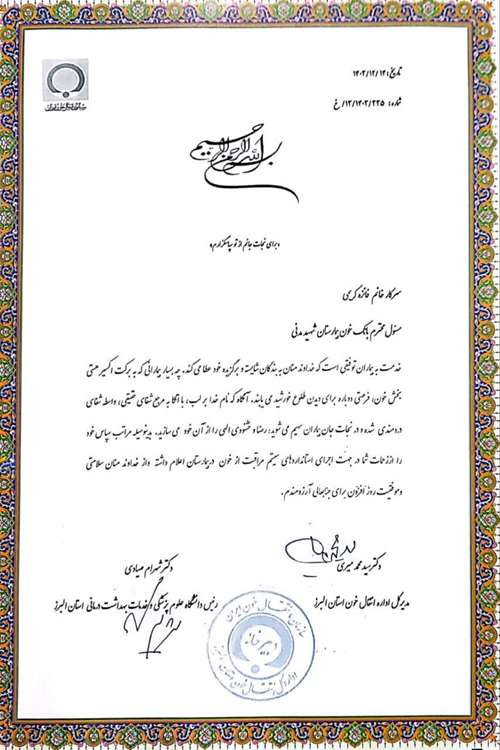 تاریخ: ۱۴۰۲/۱۲/۱۴
شماره: ۱۲/۱۴۰۲/۲۲۵/خ
بسم الله الرحمن الرحیم
«برای نجات جانم از تو سپاسگزارم»
سرکار خانم فائزه کریمی
مسئول محترم بانک خون بیمارستان شهید مدنی
خدمت به بیماران توفیقی است که خداوند منان به بندگان شایسته و برگزیده خود عطا می کند. چه بسیار بیمارانی که به برکت اکسیر هستی
بخش خون، فرصتی دوباره برای دیدن طلوع خورشید می یابند. آنگاه که نام خدا بر لب، با اتکا به مرجع شفای حقیقی، واسطه شفای
دردمندی شده و در نجات جان بیماران سهیم می شوید، رضا و خشنودی الهی را از آن خود می سازید. بدینوسیله مراتب سپاس خود
را از زحمات شما در جهت اجرای استانداردهای سیستم مراقبت از خون در بیمارستان اعلام داشته و از خداوند منان سلامتی
و موفقیت روز افزون برای جنابعالی آرزومندم.
دکتر سید محمد میری
مدیر کل اداره انتقال خون استان البرز
دکتر شهرام صیادی
رئیس دانشگاه علوم پزشکی و خدمات بهداشت درمانی استان البرز
سازمان انتقال خون ایران
دبیرخانه